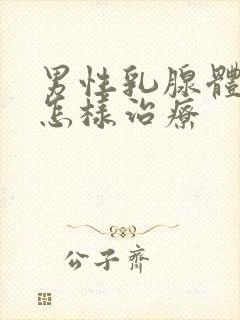 男性乳腺體
怎樣治療
公子齊